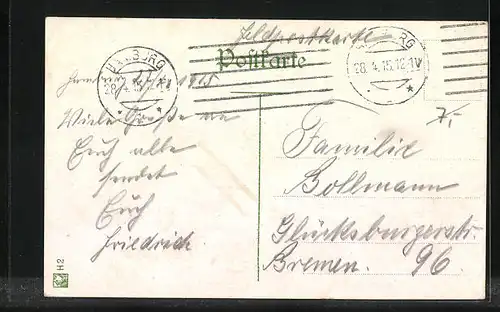 Feldpostkarte
Postkarte
HAMBURG
28.4.15.12-1V
HAMBURG
28.4.15.12-1V
Hamburg 27/4 1915
Viele Grüße an
Euch alle
sendet
Euch
Friedrich.
7,-
Familie
Bollmann
Glücksburgerstr.
Bremen. 96.
H2